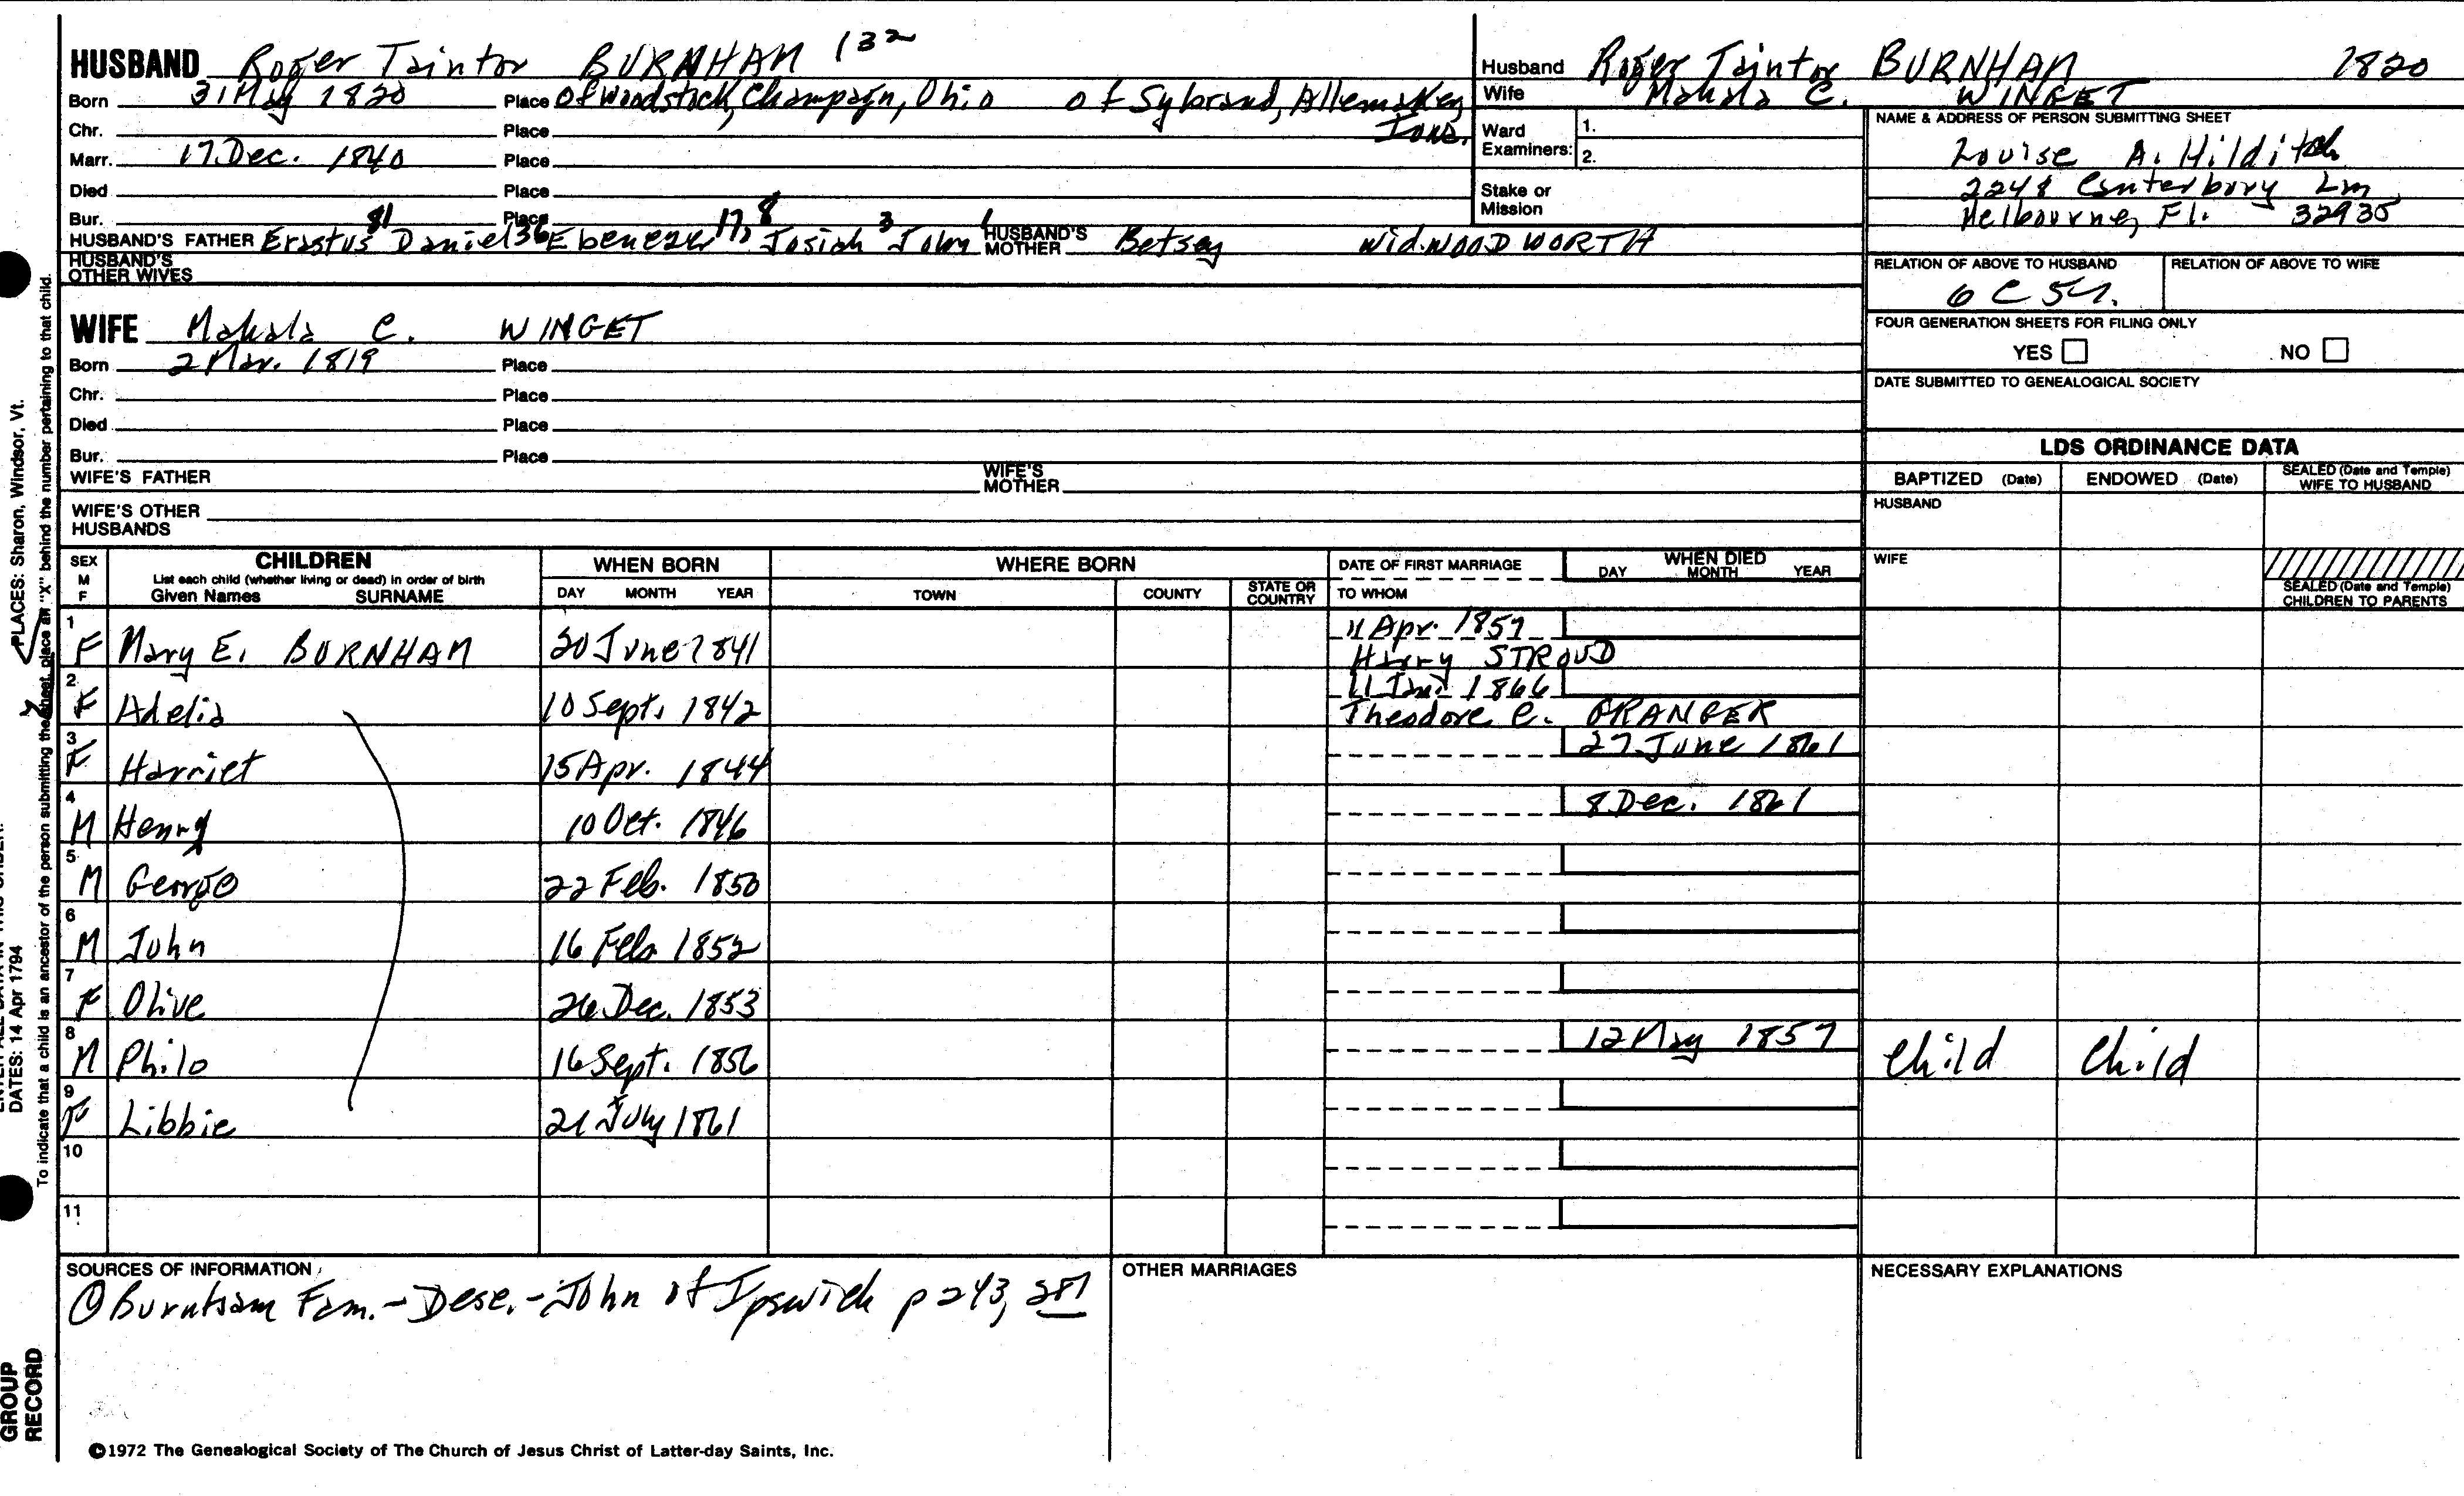 HUSBAND Roger Taintor BURNHAM 132
Born 31 May 1820 Place of Woodstock, Champaign, Ohio of Sybrand, Allemakey, Iowa.
Chr. Place
Marr. 17 Dec. 1840 Place
Died Place
Bur. Place
HUSBAND'S FATHER Erastus 81 Daniel 36 Ebenezer 17, 8 Josiah 3 John 1 HUSBAND'S MOTHER Betsey Wid. WOODWORTH
HUSBAND'S OTHER WIVES
WIFE Mahala C. WINGET
Born 2 Mar. 1819 Place
Chr. Place
Died Place
Bur. Place
WIFE'S FATHER WIFE'S MOTHER
WIFE'S OTHER HUSBANDS
Husband Roger Taintor BURNHAM 1820
Wife Mahala C. WINGET
Ward Examiners: 1.
2.
Stake or Mission
NAME & ADDRESS OF PERSON SUBMITTING SHEET
Louise A. Hilditch
2248 Canterbury Ln
Melbourne, Fl. 32935
RELATION OF ABOVE TO HUSBAND RELATION OF ABOVE TO WIFE
6 C 5
FOUR GENERATION SHEETS FOR FILING ONLY
YES NO
DATE SUBMITTED TO GENEALOGICAL SOCIETY
LDS ORDINANCE DATA
BAPTIZED (Date) ENDOWED (Date) SEALED (Date and Temple) WIFE TO HUSBAND
HUSBAND
WIFE
SEALED (Date and Temple) CHILDREN TO PARENTS
SEX M F
CHILDREN
List each child (whether living or dead) in order of birth
Given Names SURNAME
WHEN BORN
DAY MONTH YEAR
WHERE BORN
TOWN COUNTY STATE OR COUNTRY
DATE OF FIRST MARRIAGE
TO WHOM
WHEN DIED
DAY MONTH YEAR
1 F Mary E. BURNHAM 20 June 1841 11 Apr. 1857
Harry STROUD
2 F Adelia 10 Sept. 1842 11 Jan. 1866
Theodore C. GRANGER
3 F Harriet 15 Apr. 1844 27 June 1861
4 M Henry 10 Oct. 1846 8 Dec. 1861
5 M George 22 Feb. 1850
6 M John 16 Feb 1852
7 F Olive 26 Dec. 1853
8 M Philo 16 Sept. 1856 12 May 1857 Child Child
9 F Libbie 21 July 1861
10
11
SOURCES OF INFORMATION
① Burnham Fam. - Desc. - John of Ipswich p 243, 287
OTHER MARRIAGES
NECESSARY EXPLANATIONS
©1972 The Genealogical Society of The Church of Jesus Christ of Latter-day Saints, Inc.
PLACES: Sharon, Windsor, Vt.
DATES: 14 Apr 1794
To indicate that a child is an ancestor of the person submitting the sheet, place an "X" behind the number pertaining to that child.
GROUP RECORD